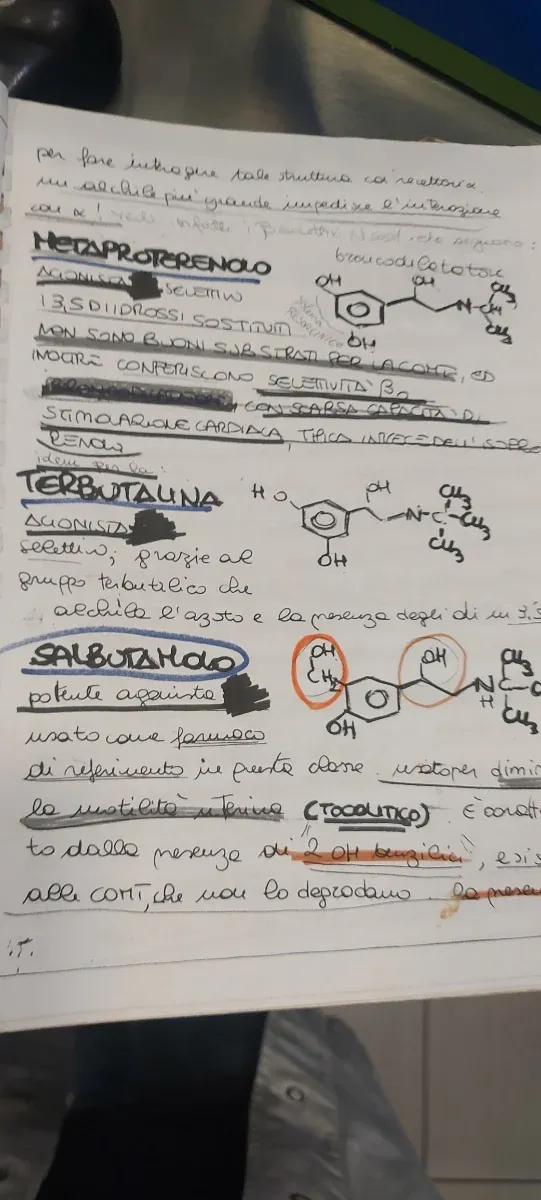 per fare interagire tale struttura coi recettori α.
un alchile più grande impedisce l'interazione
con α! vedi infatti i
broncodilatatore
METAPROTERENOLO
AGONISTA SELETTIVO
I 3,5 DIIDROSSI SOSTITUITI
OH
OH
N-CH
CH3
CH3
OH
NON SONO BUONI SUBSTRATI PER LA COMT, ED
INOLTRE CONFERISCONO SELETTIVITÀ β2
CON SCARSA CAPACITÀ DI
STIMOLAZIONE CARDIACA, TIPICA INVECE DELL'ISOPRO
RENOLO
idem per la:
TERBUTALINA
HO
OH
N-C
CH3
CH3
CH3
OH
AGONISTA
selettivo; grazie al
gruppo terbutilico che
alchila l'azoto e la presenza degli di in 3,5
SALBUTAMOLO
OH
CH2
OH
N
H
C
CH3
CH3
OH
potente agonista
usato come farmaco
di riferimento in questa classe. usato per dimin
la motilità uterina (TOCOLITICO). È caratt
to dalla presenza di "2 OH benzilici", e sis
alle COMT, che non lo degradano. la presen